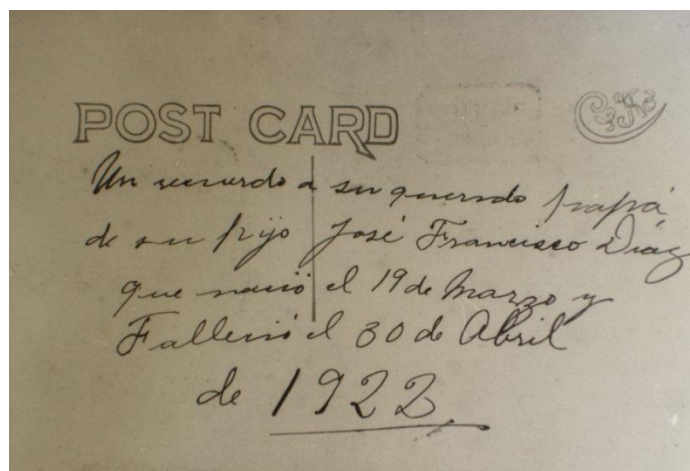 POST CARD
Un recuerdo a su querido papá
de su hijo José Francisco Díaz
que nació el 19 de Marzo y
Falleció el 30 de Abril
de 1922